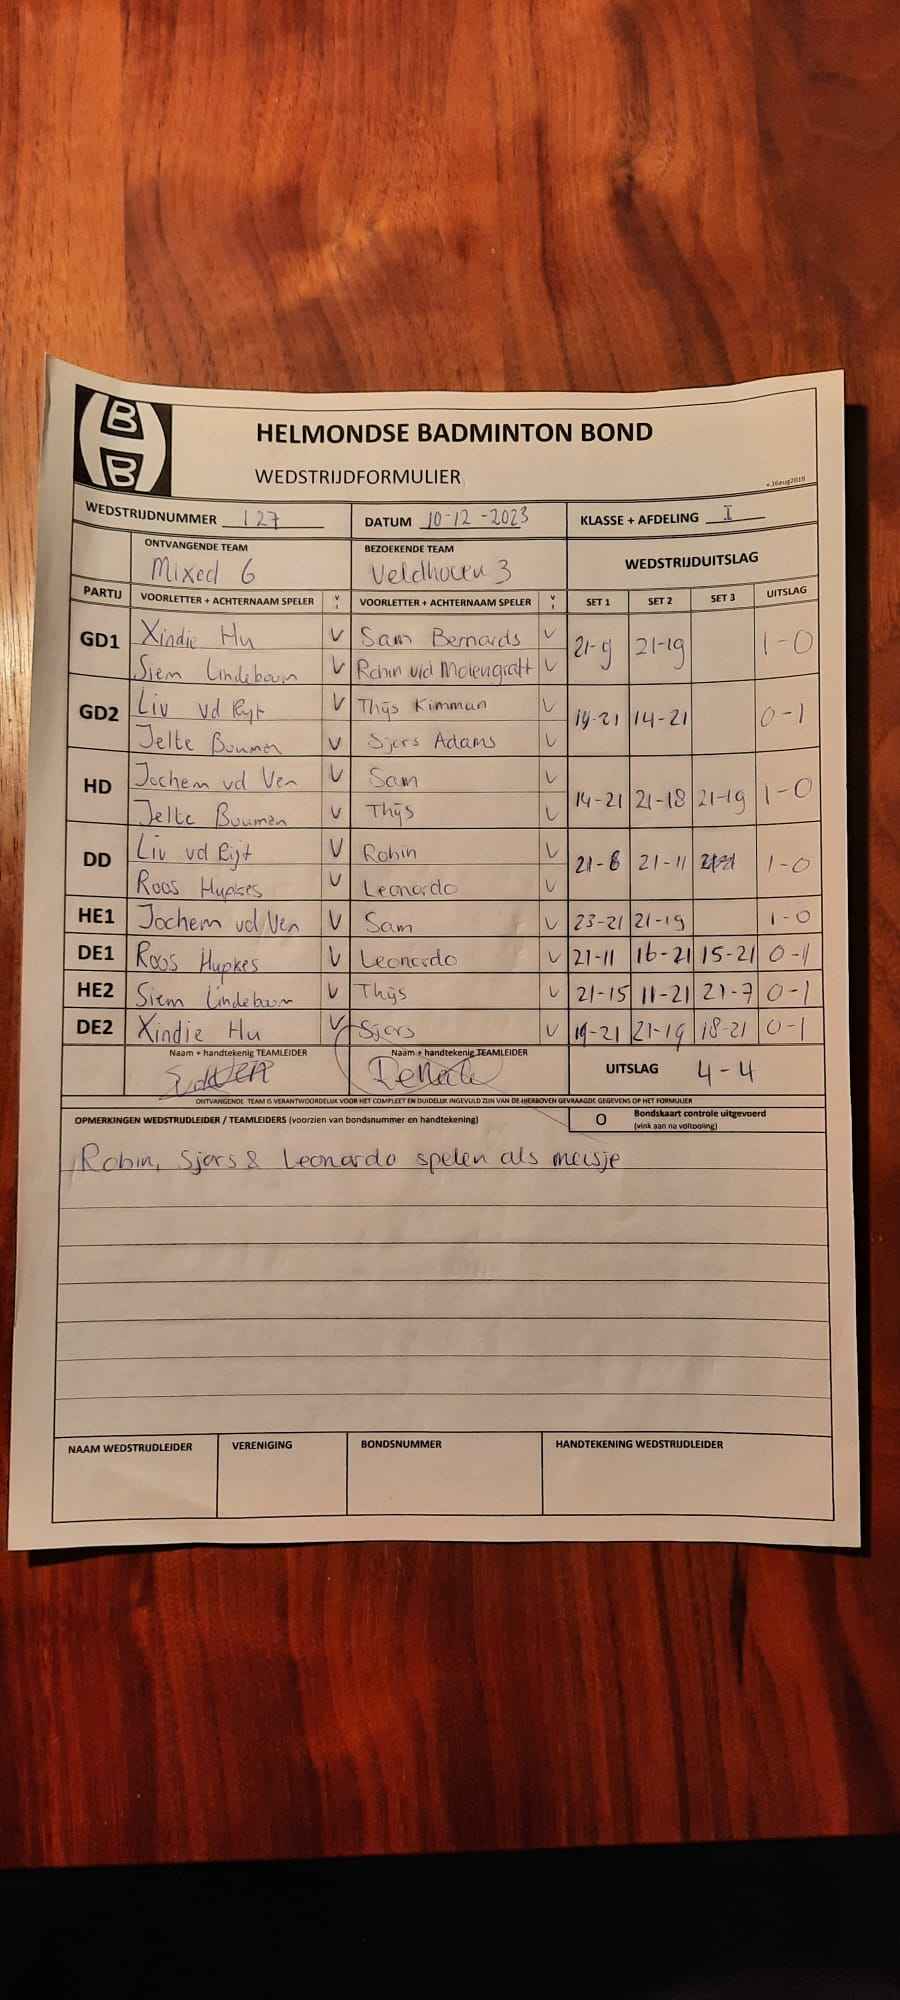 B
B
HELMONDSE BADMINTON BOND
WEDSTRIJDFORMULIER
v.16aug2019
WEDSTRIJDNUMMER 127 DATUM 10-12-2023 KLASSE + AFDELING I
ONTVANGENDE TEAM BEZOEKENDE TEAM WEDSTRIJDUITSLAG
Mixed 6 Veldhoven 3
PARTIJ VOORLETTER + ACHTERNAAM SPELER V VOORLETTER + ACHTERNAAM SPELER V SET 1 SET 2 SET 3 UITSLAG
GD1 Xindie Hu V Sam Bernards V 21-9 21-19 1-0
Siem Lindeboom V Robin v/d Molengraft V
GD2 Liv vd Rijt V Thijs Kimman V 14-21 0-1
Jelte Bouman V Sjors Adams V
HD Jochem vd Ven V Sam V 14-21 21-18 21-19 1-0
Jelte Bouman V Thijs V
DD Liv vd Rijt V Robin V 21-11 1-0
Roos Hupkes V Leonardo V
HE1 Jochem vd Ven V Sam V 23-21 21-19 1-0
DE1 Roos Hupkes V Leonardo V 21-11 16-21 15-21 0-1
HE2 Siem Lindeboom V Thijs V 21-15 11-21 21-7 0-1
DE2 Xindie Hu V Sjors V 19-21 21-19 18-21 0-1
Naam + handtekenig TEAMLEIDER Naam + handtekenig TEAMLEIDER UITSLAG 4-4
ONTVANGENDE TEAM IS VERANTWOORDELIJK VOOR HET COMPLEET EN DUIDELIJK INGEVULD ZIJN VAN DE HIERBOVEN GEVRAAGDE GEGEVENS OP HET FORMULIER
OPMERKINGEN WEDSTRIJDLEIDER / TEAMLEIDERS (voorzien van bondsnummer en handtekening) O Bondskaart controle uitgevoerd
(vink aan na voltooiing)
Robin, Sjors & Leonardo spelen als meisje
NAAM WEDSTRIJDLEIDER VERENIGING BONDSNUMMER HANDTEKENING WEDSTRIJDLEIDER